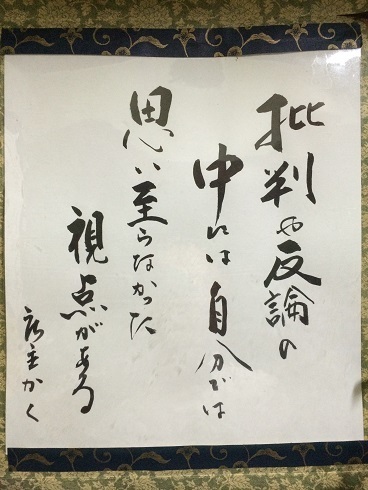 批判や反論の
中には自分では
思い至らなかった
視点がある
坊主かく